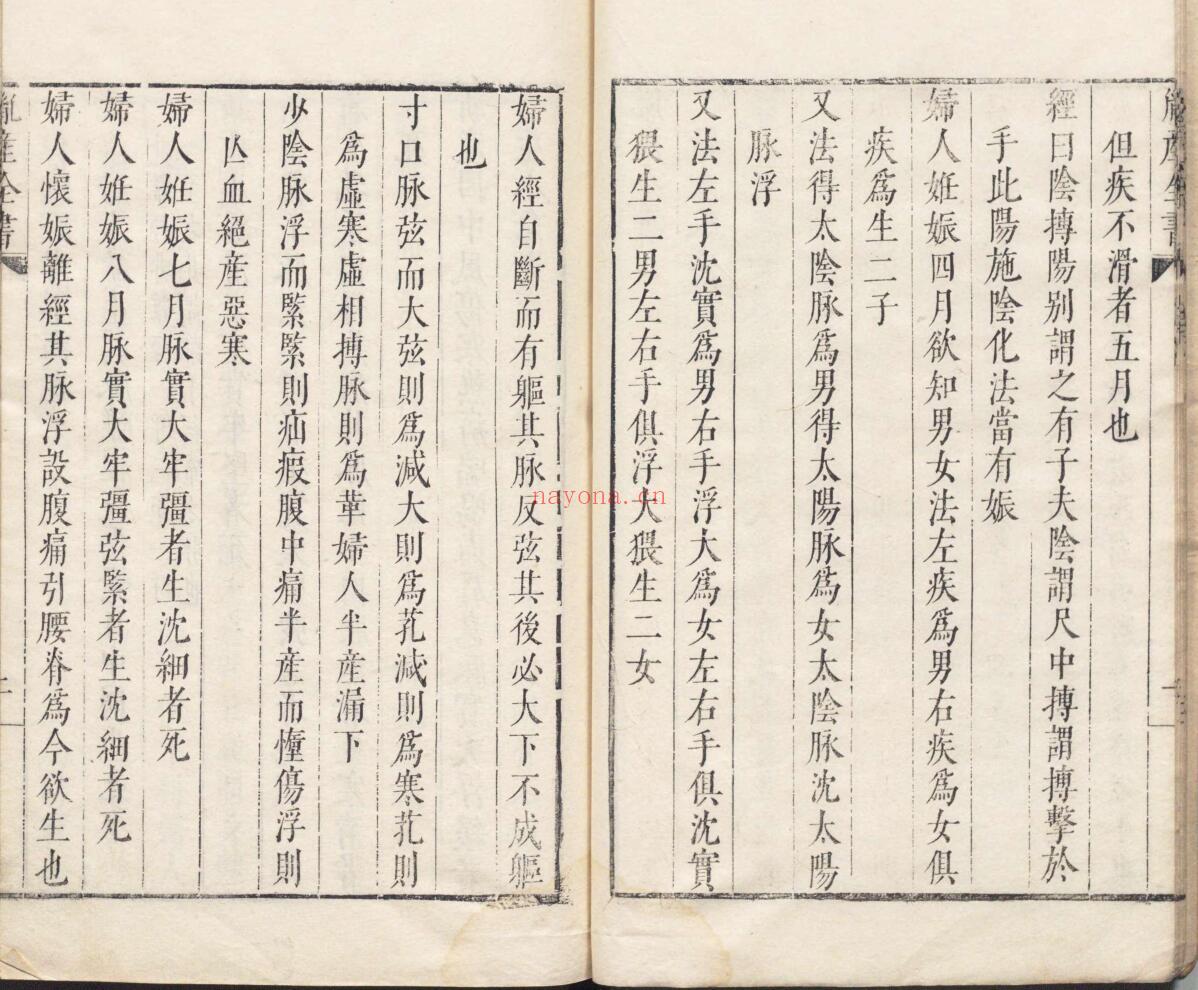 但疾不滑者五月也
經曰陰摶陽别謂之有子夫陰謂尺中摶謂摶擊於
手此陽施陰化法當有娠
婦人姙娠四月欲知男女法左疾爲男右疾爲女俱
疾爲生二子
又法得太陰脉爲男得太陽脉爲女太陰脉沈太陽
脉浮
又法左手沈實爲男右手浮大爲女左右手俱沈實
猥生二男左右手俱浮大猥生二女
婦人經自斷而有軀其脉反弦其後必大下不成軀
也
寸口脉弦而大弦則爲減大則爲芤減則爲寒芤則
爲虛寒虛相摶脉則爲革婦人半産漏下
少陰脉浮而緊緊則疝瘕腹中痛半産而憧傷浮則
亾血絕産惡寒
婦人姙娠七月脉實大牢彊者生沈細者死
婦人姙娠八月脉實大牢彊弦緊者生沈細者死
婦人懷娠離經其脉浮設腹痛引腰脊爲今欲生也
胤産全書
nayona.cn